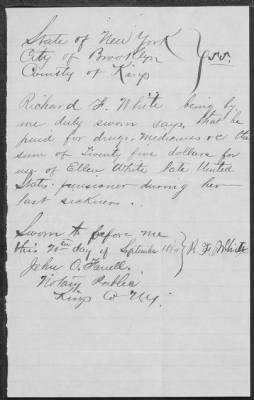 State of New York
City of Brooklyn } ss.
County of Kings
Richard F. White being by
me duly sworn says that he
paid for drugs, Medicines &c the
sum of Twenty five dollars for
use of Ellen White late United
States pensioner during her
last sickness.
Sworn to before me
this 20th day of September } R. F. White
John O. Farrell.
Notary Public
Kings Co N.Y.